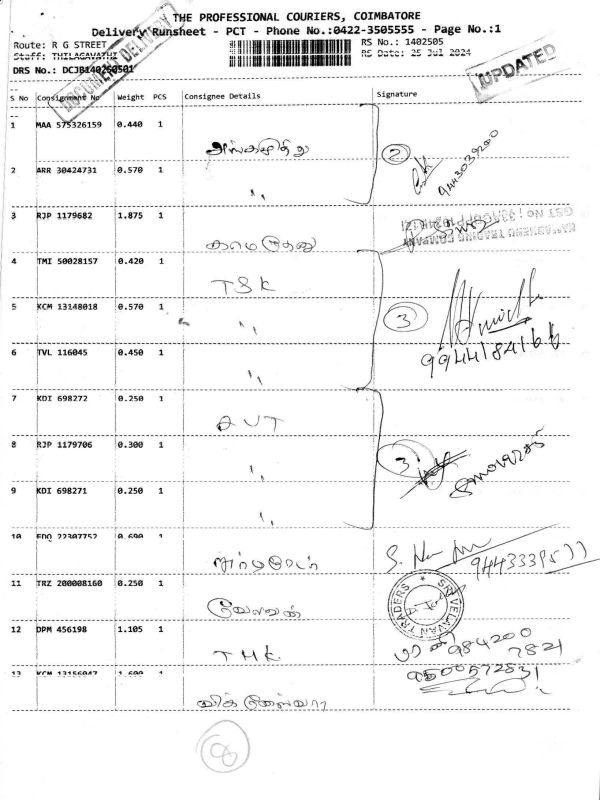 THE PROFESSIONAL COURIERS, COIMBATORE
Delivery Runsheet - PCT - Phone No.:0422-3505555 - Page No.:1
Route: R G STREET RS No.: 1402505
Staff: THILAGAVATHI RS Date: 25 Jul 2024
DRS No.: DCJB140250501
DOCUMENT DELIVERY
UPDATED
S No Consignment No Weight PCS Consignee Details Signature
1 MAA 575326159 0.440 1
அங்கமுத்து
2
9443039200
2 ARR 30424731 0.570 1
,,
3 RJP 1179682 1.875 1
காமதேனு
KAMADHENU TRADING COMPANY
4 TMI 50028157 0.420 1
TSK
5 KCM 13148018 0.570 1
,,
3
9944184166
6 TVL 116045 0.450 1
,,
7 KDI 698272 0.250 1
AVT
8 RJP 1179706 0.300 1
,,
3
9 KDI 698271 0.250 1
,,
10 EDQ 22307752 0.690 1
9443339577
11 TRZ 200008160 0.250 1
வேலவன்
SRI VELAVAN TRADERS
12 DPM 456198 1.105 1
TMK
984200
7821
9500572831
13 KCM 13156047 1.600 1
விக்னேஸ்வரா
8